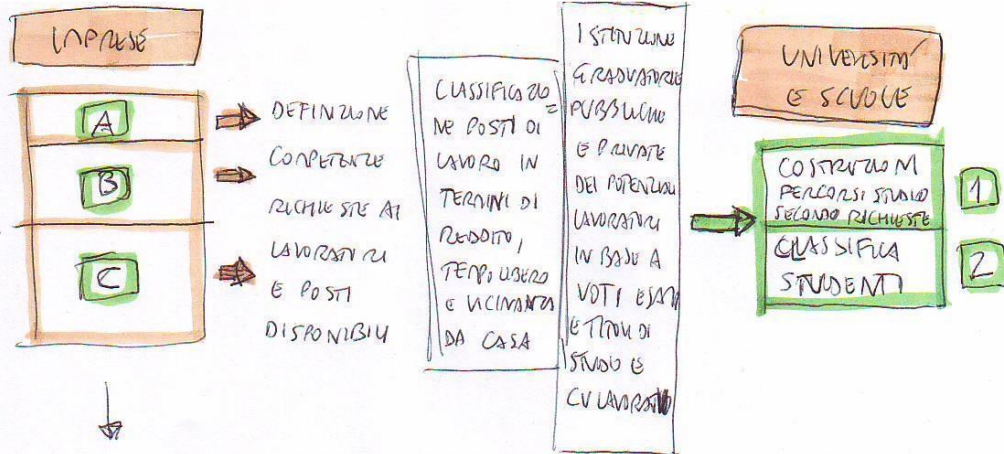 IMPRESE
A
B
C
DEFINIZIONE
COMPETENZE
RICHIESTE AI
LAVORATORI
E POSTI
DISPONIBILI
CLASSIFICAZIO=
NE POSTI DI
LAVORO IN
TERMINI DI
REDDITO,
TEMPO LIBERO
E VICINANZA
DA CASA
ISTITUZIONE
GRADUATORIE
PUBBLICHE
E PRIVATE
DEI POTENZIALI
LAVORATORI
IN BASE A
VOTI ESAMI
E TITOLI DI
STUDIO E
CV LAVORATIVO
UNIVERSITA'
E SCUOLE
COSTRUZIONI
PERCORSI STUDIO
SECONDO RICHIESTE
1
CLASSIFICA
STUDENTI
2